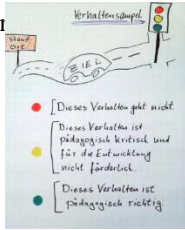 Verhaltensampel
Stand-
Ort
ZIEL
Dieses Verhalten geht nicht.
Dieses Verhalten ist
pädagogisch kritisch und
für die Entwicklung
nicht förderlich.
Dieses Verhalten ist
pädagogisch richtig.